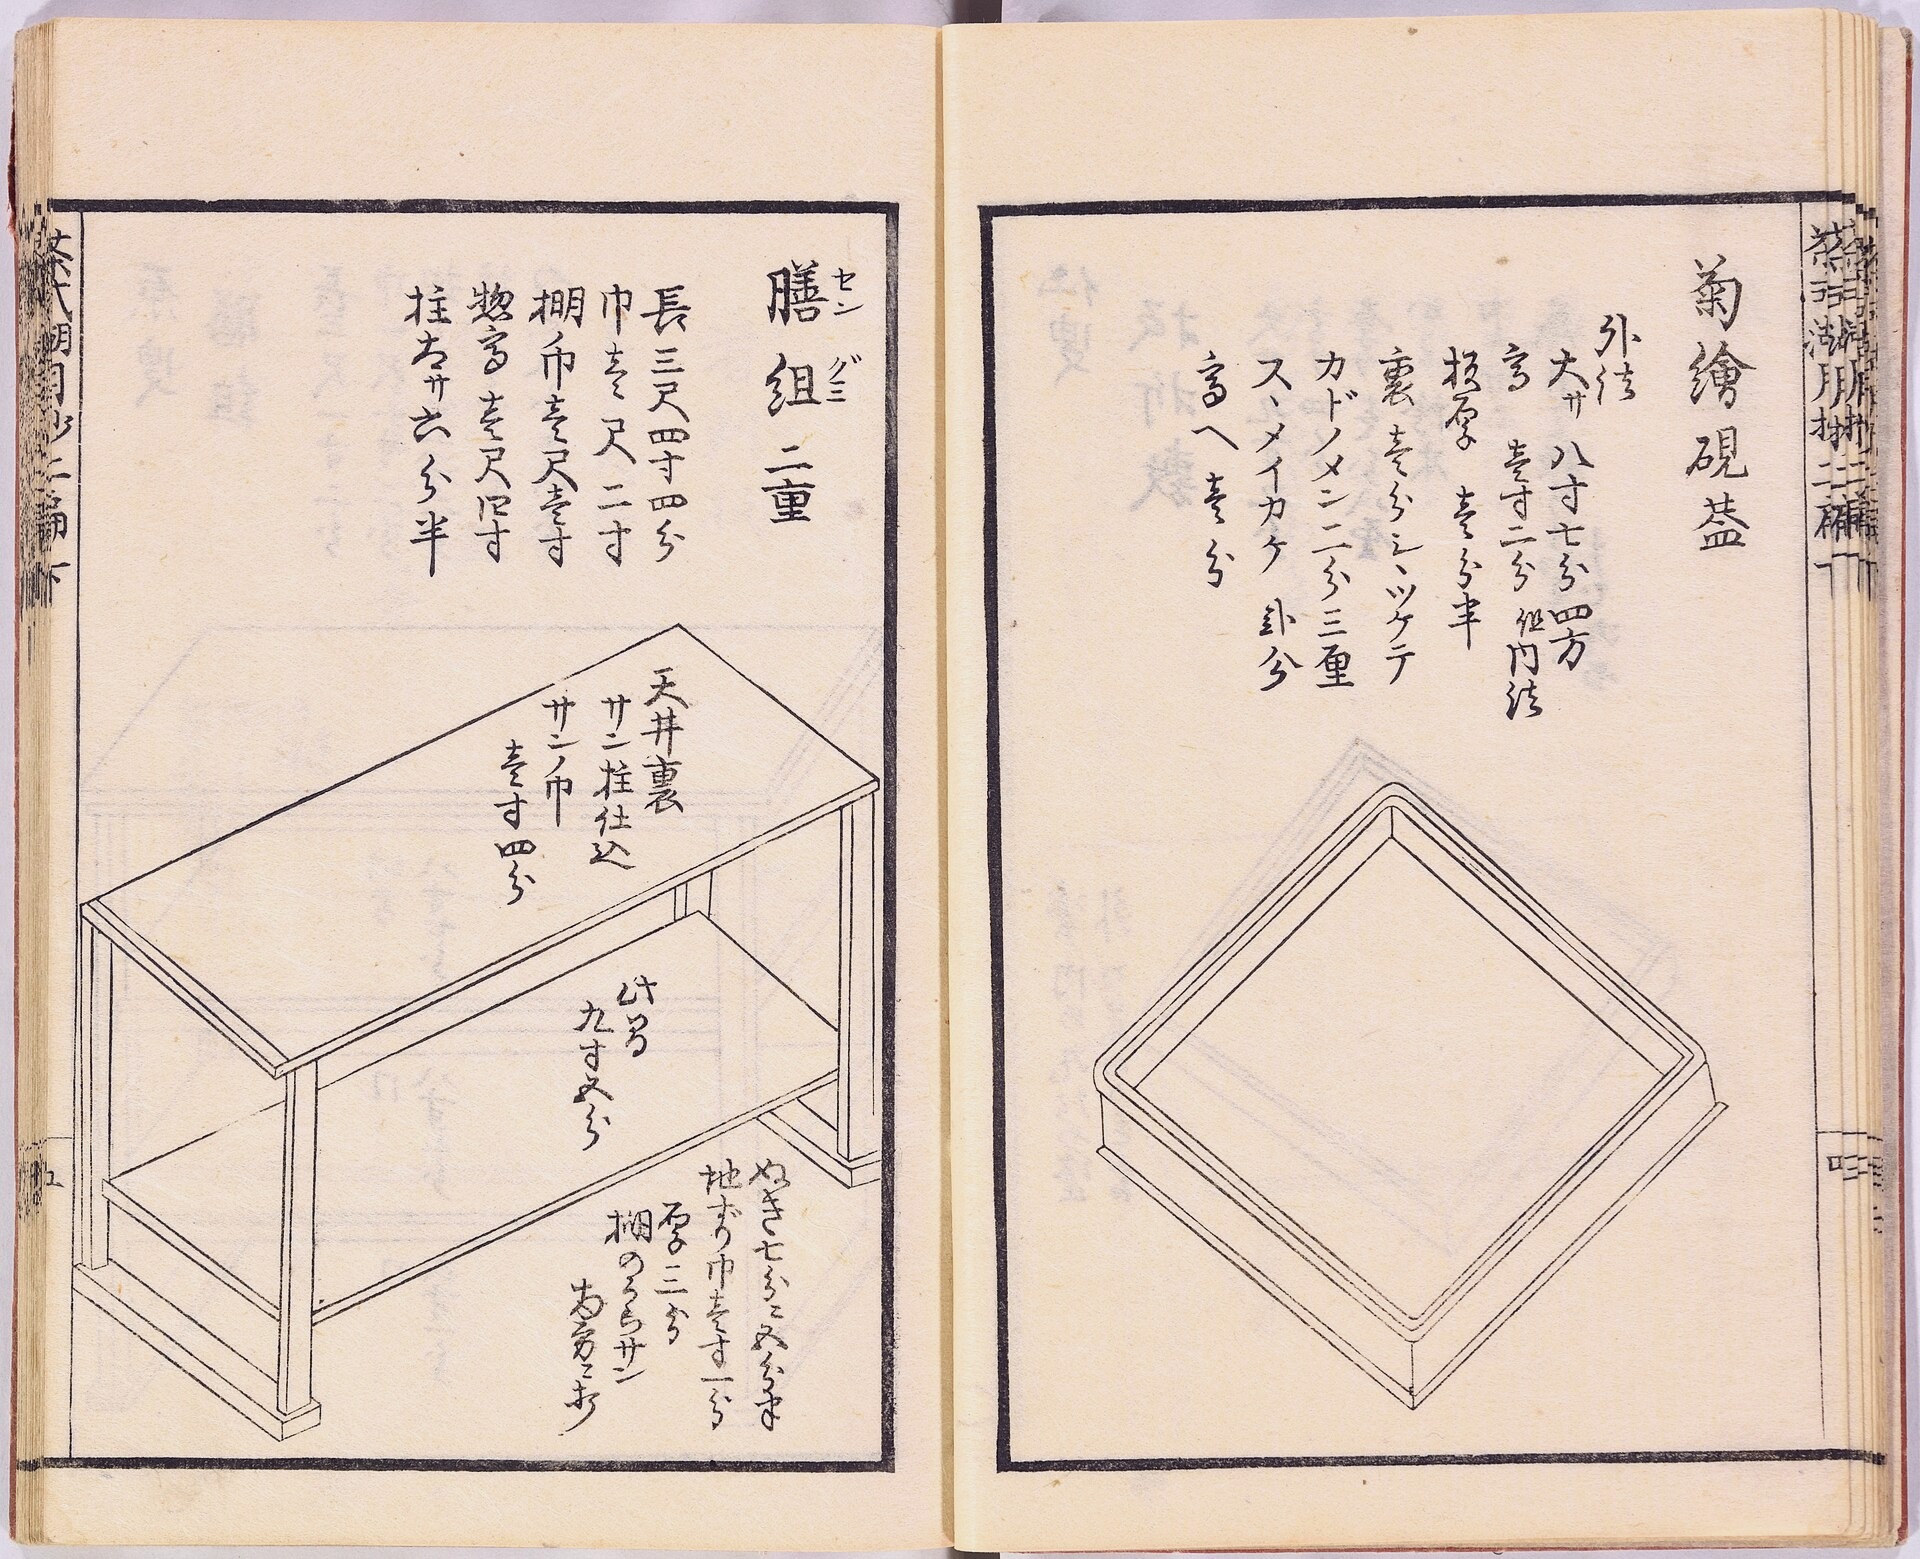 菊繪硯葢
外法
大サ 八寸七分四方
高 壹寸二分 但内法
板厚 壹分半
裏 壹分シヽツケテ
カドノメン二分三厘
スヽメイカケ 卦分
高へ 壹分
四
膳組 二重
セングミ
長三尺四寸四分
巾壹尺二寸
棚巾壹尺壹寸
惣高壹尺四寸
柱太サ六分半
天井裏
サン柱仕込
サンノ巾
壹寸四分
此間
九寸五分
ぬき七分ニ五分半
地ずり巾壹寸一分
厚三分
棚のうらサン
茶氏湖月抄二編 下
五